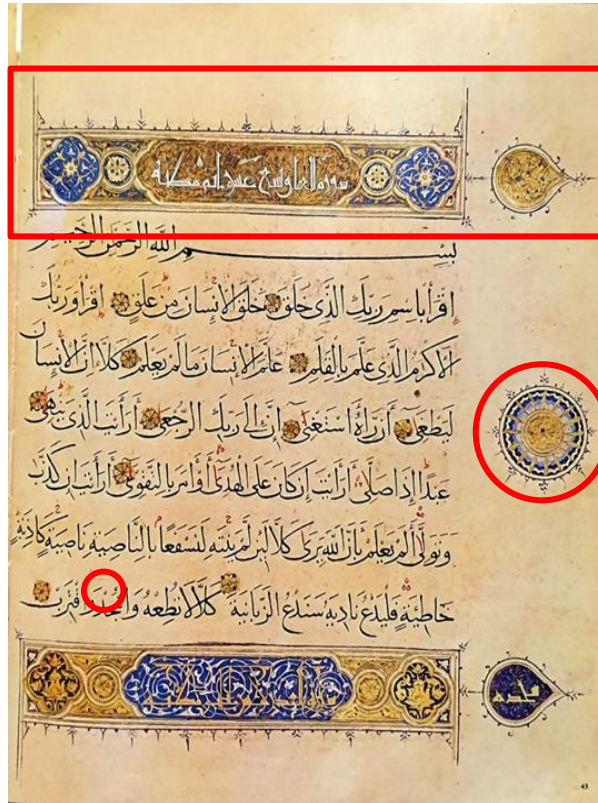 سورة العلق تسع عشر آية مكية
بِسْمِ اللَّهِ الرَّحْمَنِ الرَّحِيمِ
اقْرَأْ بِاسْمِ رَبِّكَ الَّذِي خَلَقَ خَلَقَ الْإِنْسَانَ مِنْ عَلَقٍ اقْرَأْ وَرَبُّكَ
الْأَكْرَمُ الَّذِي عَلَّمَ بِالْقَلَمِ عَلَّمَ الْإِنْسَانَ مَا لَمْ يَعْلَمْ كَلَّا إِنَّ الْإِنْسَانَ
لَيَطْغَى أَنْ رَآهُ اسْتَغْنَى إِنَّ إِلَى رَبِّكَ الرُّجْعَى أَرَأَيْتَ الَّذِي يَنْهَى
عَبْدًا إِذَا صَلَّى أَرَأَيْتَ إِنْ كَانَ عَلَى الْهُدَى أَوْ أَمَرَ بِالتَّقْوَى أَرَأَيْتَ إِنْ كَذَّبَ
وَتَوَلَّى أَلَمْ يَعْلَمْ بِأَنَّ اللَّهَ يَرَى كَلَّا لَئِنْ لَمْ يَنْتَهِ لَنَسْفَعًا بِالنَّاصِيَةِ نَاصِيَةٍ كَاذِبَةٍ
خَاطِئَةٍ فَلْيَدْعُ نَادِيَهُ سَنَدْعُ الزَّبَانِيَةَ كَلَّا لَا تُطِعْهُ وَاسْجُدْ وَاقْتَرِبْ
43